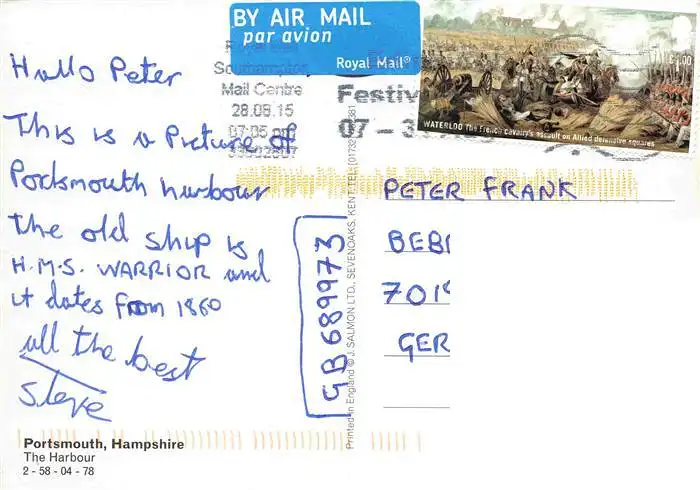 Hullo Peter
This is a Picture of
Portsmouth harbour
the old ship is
H.M.S. WARRIOR and
it dates from 1860
all the best
Steve
Portsmouth, Hampshire
The Harbour
2 - 58 - 04 - 78
BY AIR MAIL
par avion
Royal Mail®
Royal Mail
Southampton
Mail Centre
28.08.15
07:05 pm
Festiv
07 - 3
£1.00
WATERLOO The French cavalry's assault on Allied defensive squares
GB689973
Printed in England © J. SALMON LTD., SEVENOAKS, KENT. TELE (01732
381
PETER FRANK
BEB
701
GER